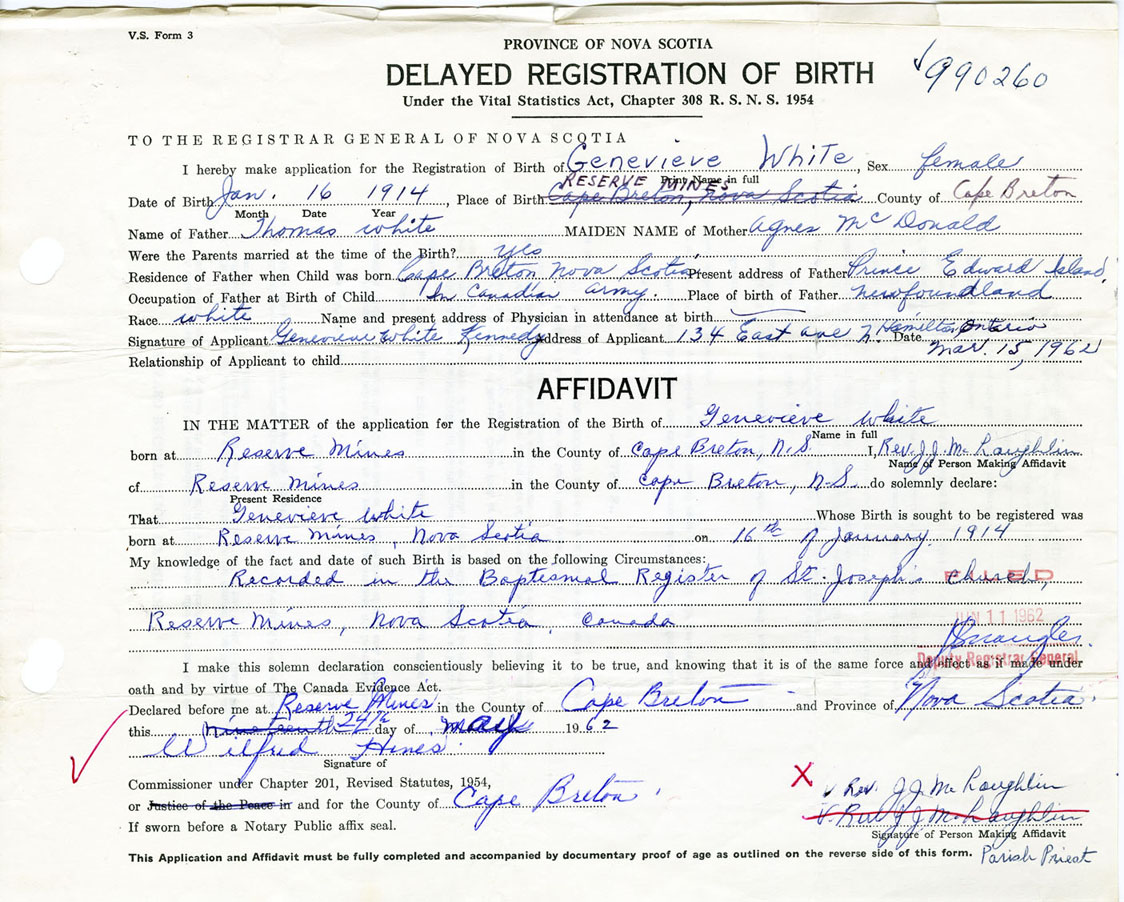 V.S. Form 3
PROVINCE OF NOVA SCOTIA
DELAYED REGISTRATION OF BIRTH 990260
Under the Vital Statistics Act, Chapter 308 R. S. N. S. 1954
TO THE REGISTRAR GENERAL OF NOVA SCOTIA
I hereby make application for the Registration of Birth of Genevieve White, Sex female
RESERVE MINES Print Name in full
Date of Birth Jan. 16 1914, Place of Birth Cape Breton, Nova Scotia County of Cape Breton
Month Date Year
Name of Father Thomas White MAIDEN NAME of Mother Agnes McDonald
Were the Parents married at the time of the Birth? yes
Residence of Father when Child was born Cape Breton Nova Scotia Present address of Father Prince Edward Island
Occupation of Father at Birth of Child In Canadian Army. Place of birth of Father Newfoundland
Race white Name and present address of Physician in attendance at birth
Signature of Applicant Genevieve White Kennedy Address of Applicant 134 East Ave N. Hamilton Ontario Date Mar. 15, 1962
Relationship of Applicant to child
AFFIDAVIT
IN THE MATTER of the application for the Registration of the Birth of Genevieve White
Name in full
born at Reserve Mines in the County of Cape Breton, N.S. I, Rev. J.J. McLaughlin
Name of Person Making Affidavit
of Reserve Mines in the County of Cape Breton, N.S. do solemnly declare:
Present Residence
That Genevieve White Whose Birth is sought to be registered was
born at Reserve Mines, Nova Scotia on 16th of January 1914
My knowledge of the fact and date of such Birth is based on the following Circumstances:
Recorded in the Baptismal Register of St. Joseph's Church,
FILED
Reserve Mines, Nova Scotia, Canada
JUN 11 1962
Deputy Registrar General
I make this solemn declaration conscientiously believing it to be true, and knowing that it is of the same force and effect as if made under
oath and by virtue of The Canada Evidence Act.
Declared before me at Reserve Mines in the County of Cape Breton and Province of Nova Scotia.
this Nineteenth 24th day of May 1962
Wilfred Hines
Signature of
Commissioner under Chapter 201, Revised Statutes, 1954,
or Justice of the Peace in and for the County of Cape Breton.
X Rev. J.J. McLaughlin
Rev. J.J. McLaughlin
If sworn before a Notary Public affix seal.
Signature of Person Making Affidavit
This Application and Affidavit must be fully completed and accompanied by documentary proof of age as outlined on the reverse side of this form. Parish Priest